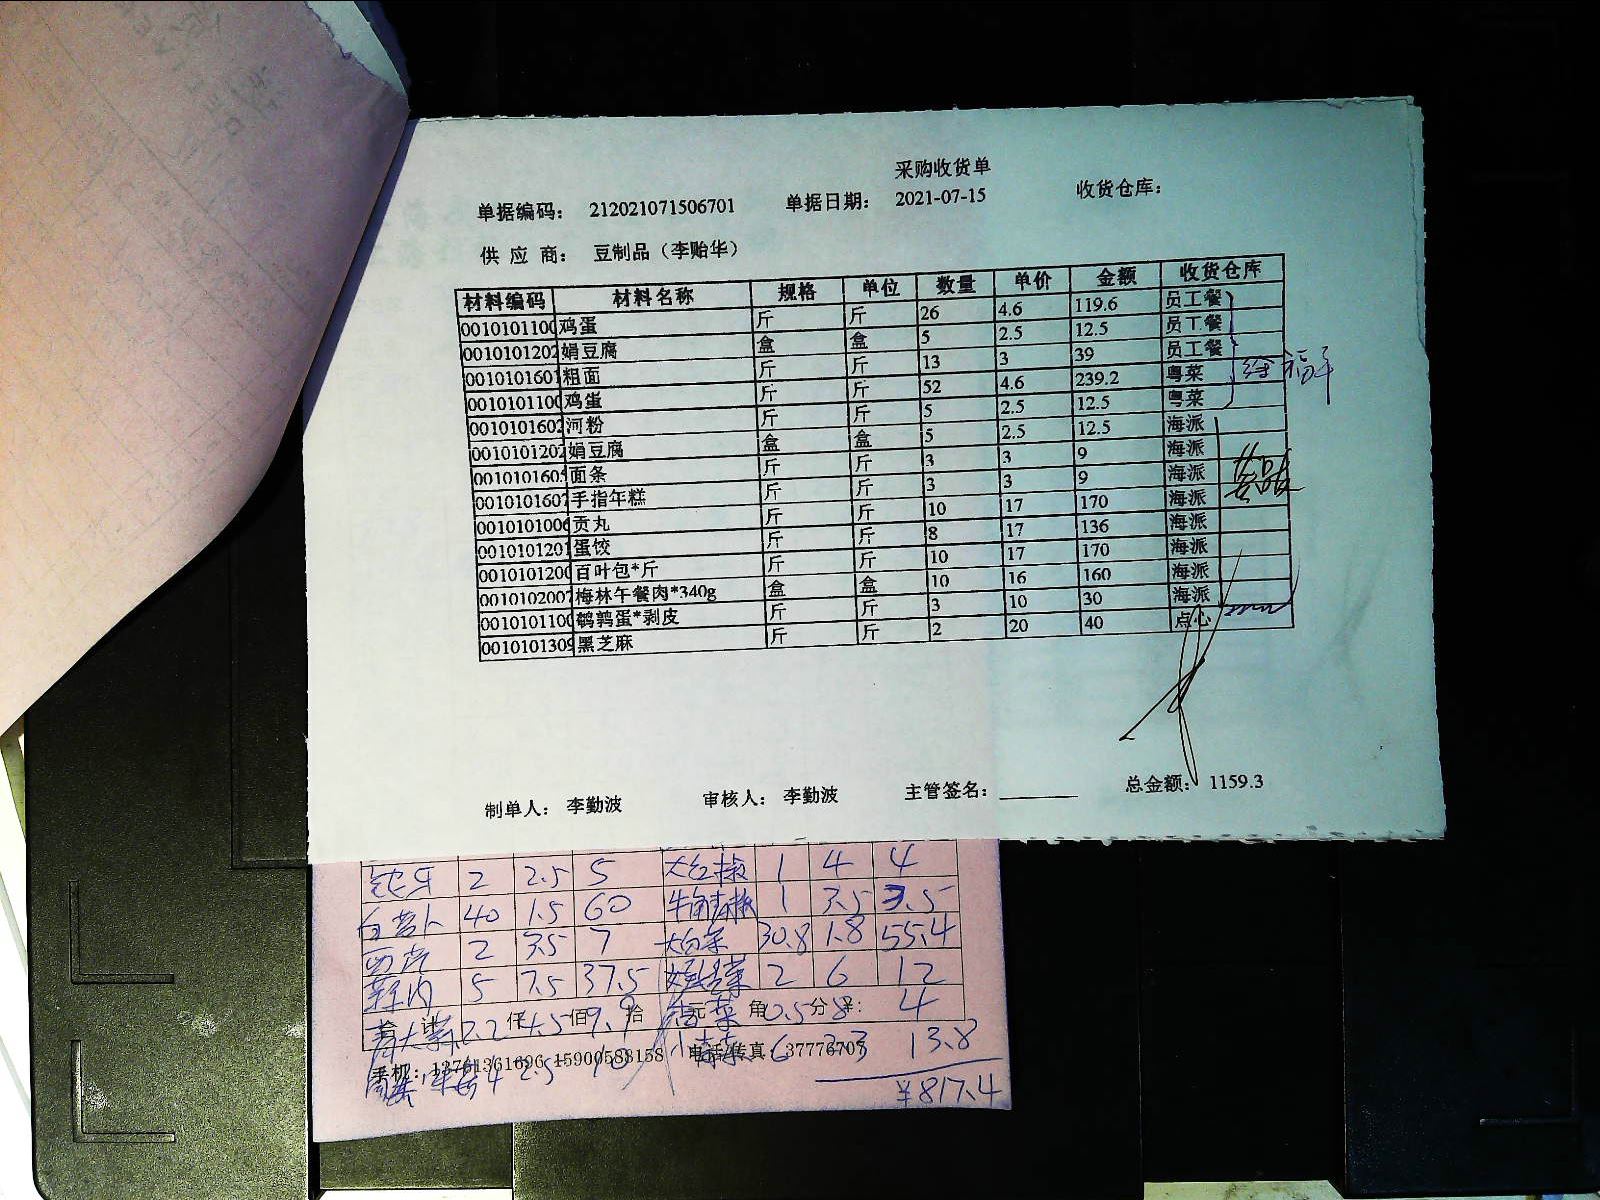 采购收货单
单据编码： 212021071506701 单据日期： 2021-07-15 收货仓库：
供 应 商： 豆制品（李贻华）
材料编码 材料名称 规格 单位 数量 单价 金额 收货仓库
0010101100 鸡蛋 斤 斤 26 4.6 119.6 员工餐
0010101202 娟豆腐 盒 盒 5 2.5 12.5 员工餐
0010101601 粗面 斤 斤 13 3 39 员工餐
0010101100 鸡蛋 斤 斤 52 4.6 239.2 粤菜
0010101602 河粉 斤 斤 5 2.5 12.5 粤菜
0010101202 娟豆腐 盒 盒 5 2.5 12.5 海派
001010160 面条 斤 斤 3 3 9 海派
0010101607 手指年糕 斤 斤 3 3 9 海派
0010101006 贡丸 斤 斤 10 17 170 海派
0010101201 蛋饺 斤 斤 8 17 136 海派
0010101200 百叶包*斤 斤 斤 10 17 170 海派
0010102007 梅林午餐肉*340g 盒 盒 10 16 160 海派
0010101100 鹌鹑蛋*剥皮 斤 斤 3 10 30 海派
0010101309 黑芝麻 斤 斤 2 20 40 点心
制单人： 李勤波 审核人： 李勤波 主管签名： 总金额： 1159.3
2 2.5 5 大红椒 1 4 4
白萝卜 40 1.5 60 牛角青椒 1 3.5 3.5
西芹 2 3.5 7 大白菜 30.8 1.8 55.4
5 7.5 37.5 2 6 12
仟 4.5 佰 9.9 拾 元 香菜 角 0.5 分 8 4
手机：13761361696 15900588158 电话/传真 37776707 6 2.3 13.8
4 2.5 10 ¥817.4